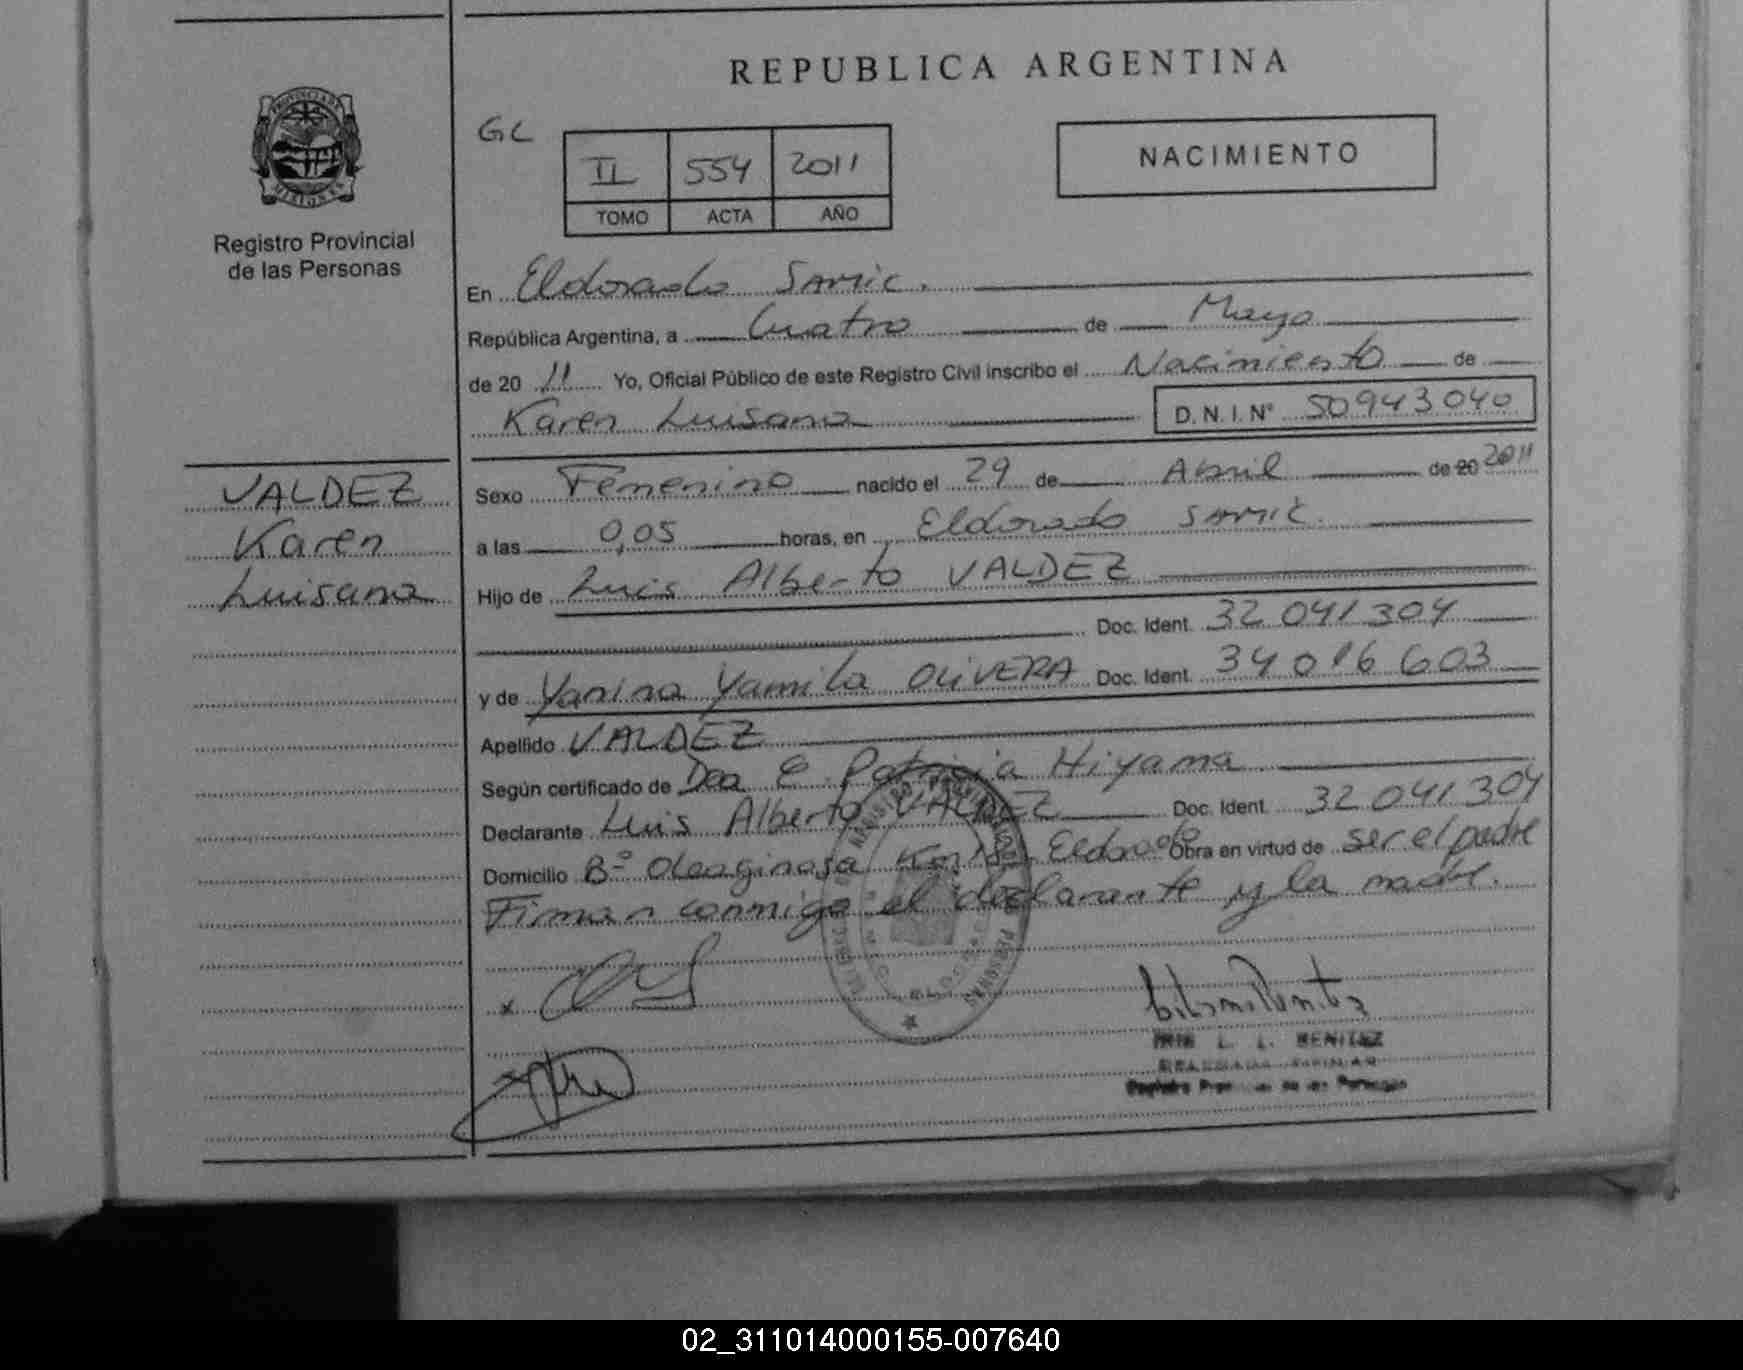 REPUBLICA ARGENTINA
PROVINCIA DE
MISIONES
Registro Provincial
de las Personas
GL
II 554 2011
TOMO ACTA AÑO
NACIMIENTO
En Eldorado SAMIC.
República Argentina, a Cuatro de Mayo
de 20 11 Yo, Oficial Público de este Registro Civil inscribo el Nacimiento de
Karen Luisana D. N. I. Nº 50943040
VALDEZ
Karen
Luisana
Sexo Femenino nacido el 29 de Abril de 20 2011
a las 0,05 horas, en Eldorado SAMIC.
Hijo de Luis Alberto VALDEZ
Doc. Ident. 32 041 304
y de Yanina Yamila OLIVERA Doc. Ident. 34 016 603
Apellido VALDEZ
Según certificado de Dra E. Patricia Hiyama
Declarante Luis Alberto VALDEZ Doc. Ident. 32 041 304
Domicilio Bº Oleaginosa Eldorado Obra en virtud de ser el padre
Firman conmigo el declarante y la madre.
x
L. L. BENITEZ
Registro de las Personas
02_311014000155-007640